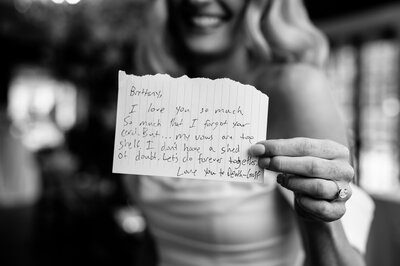 Brittany,
I love you so much
So much that I forgot your
card. But... my vows are top
shelf. I don't have a shed
of doubt. Lets do forever together.
Love You to Death-